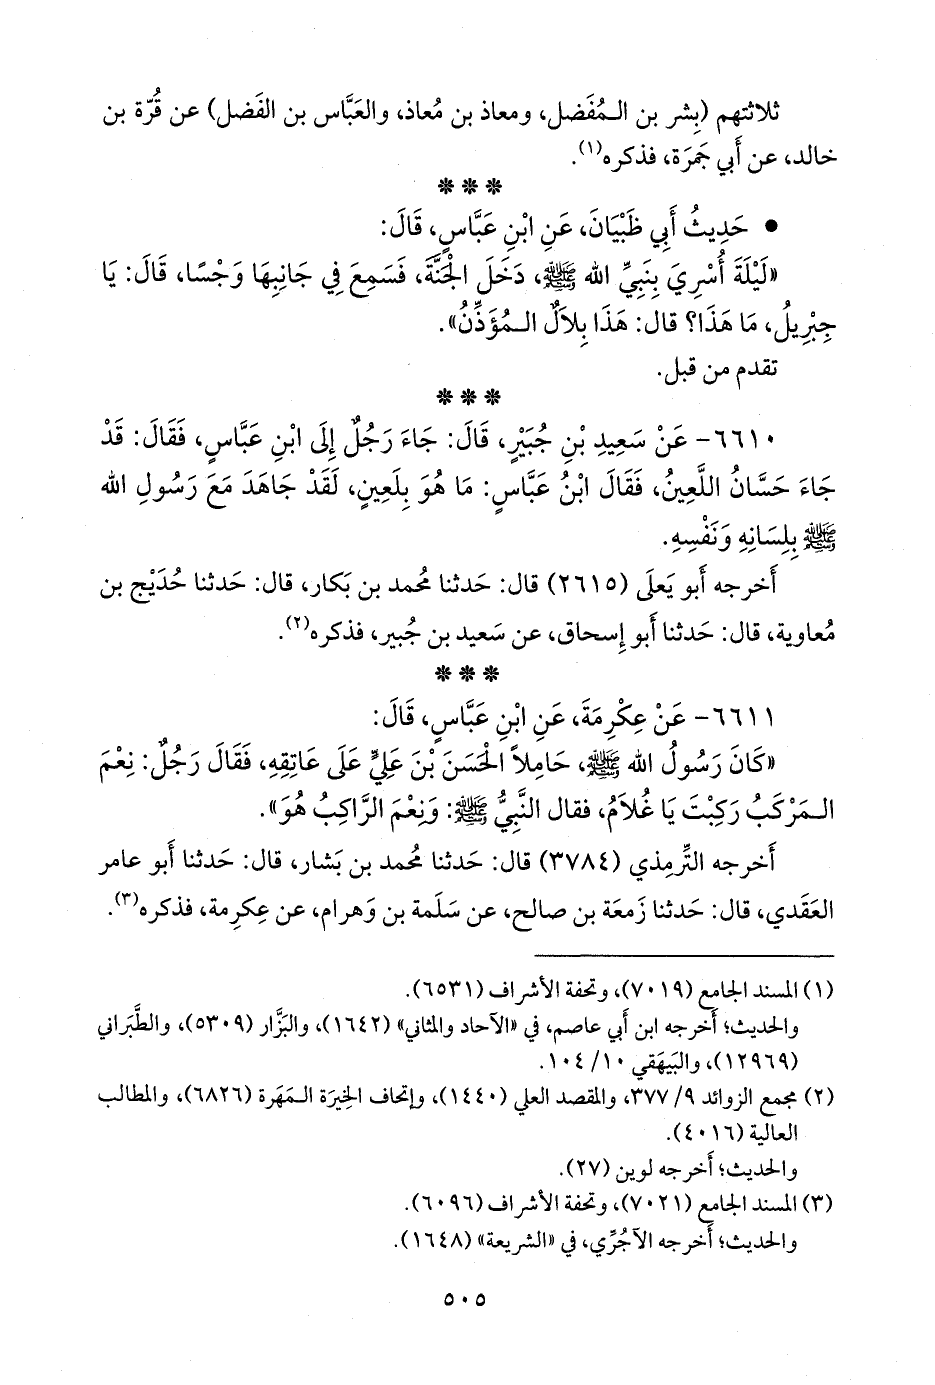 ثلاثتهم (بِشر بن الـمُفَضل، ومعاذ بن مُعاذ، والعَبَّاس بن الفَضل) عن قُرّة بن
خالد، عن أَبي جَمرَة، فذكره⁽¹⁾.
* * *
• حَدِيثُ أَبِي ظَبْيَانَ، عَنِ ابْنِ عَبَّاسٍ، قَالَ:
«لَيْلَةَ أُسْرِيَ بِنَبِيِّ الله ﷺ، دَخَلَ الْجَنَّةَ، فَسَمِعَ فِي جَانِبِهَا وَجْسًا، قَالَ: يَا
جِبْرِيلُ، مَا هَذَا؟ قال: هَذَا بِلاَلٌ الـمُؤَذِّنُ».
تقدم من قبل.
* * *
٦٦١٠- عَنْ سَعِيدِ بْنِ جُبَيْرٍ، قَالَ: جَاءَ رَجُلٌ إِلَى ابْنِ عَبَّاسٍ، فَقَالَ: قَدْ
جَاءَ حَسَّانُ اللَّعِينُ، فَقَالَ ابْنُ عَبَّاسٍ: مَا هُوَ بِلَعِينٍ، لَقَدْ جَاهَدَ مَعَ رَسُولِ الله
ﷺ بِلِسَانِهِ وَنَفْسِهِ.
أَخرجه أَبو يَعلَى (٢٦١٥) قال: حَدثنا مُحمد بن بَكار، قال: حَدثنا حُدَيْج بن
مُعاوية، قال: حَدثنا أَبو إِسحاق، عن سَعيد بن جُبير، فذكره⁽٢⁾.
* * *
٦٦١١- عَنْ عِكْرِمَةَ، عَنِ ابْنِ عَبَّاسٍ، قَالَ:
«كَانَ رَسُولُ الله ﷺ، حَامِلاً الْحَسَنَ بْنَ عَلِيٍّ عَلَى عَاتِقِهِ، فَقَالَ رَجُلٌ: نِعْمَ
الـمَرْكَبُ رَكِبْتَ يَا غُلاَمُ، فقال النَّبِيُّ ﷺ: وَنِعْمَ الرَّاكِبُ هُوَ».
أَخرجه التِّرمِذي (٣٧٨٤) قال: حَدثنا مُحمد بن بَشار، قال: حَدثنا أَبو عامر
العَقَدي، قال: حَدثنا زَمعَة بن صالح، عن سَلَمة بن وَهرام، عن عِكرمة، فذكره⁽٣⁾.
(١) المسند الجامع (٧٠١٩)، وتحفة الأشراف (٦٥٣١).
والحديث؛ أَخرجه ابن أَبي عاصم، في «الآحاد والمثاني» (١٦٤٢)، والبَزَّار (٥٣٠٩)، والطَّبَراني
(١٢٩٦٩)، والبَيهَقي ١٠/ ١٠٤.
(٢) مجمع الزوائد ٩/ ٣٧٧، والمقصد العلي (١٤٤٠)، وإتحاف الخِيَرَة الـمَهَرة (٦٨٢٦)، والمطالب
العالية (٤٠١٦).
والحديث؛ أَخرجه لوين (٢٧).
(٣) المسند الجامع (٧٠٢١)، وتحفة الأشراف (٦٠٩٦).
والحديث؛ أَخرجه الآجُرِّي، في «الشريعة» (١٦٤٨).
٥٠٥